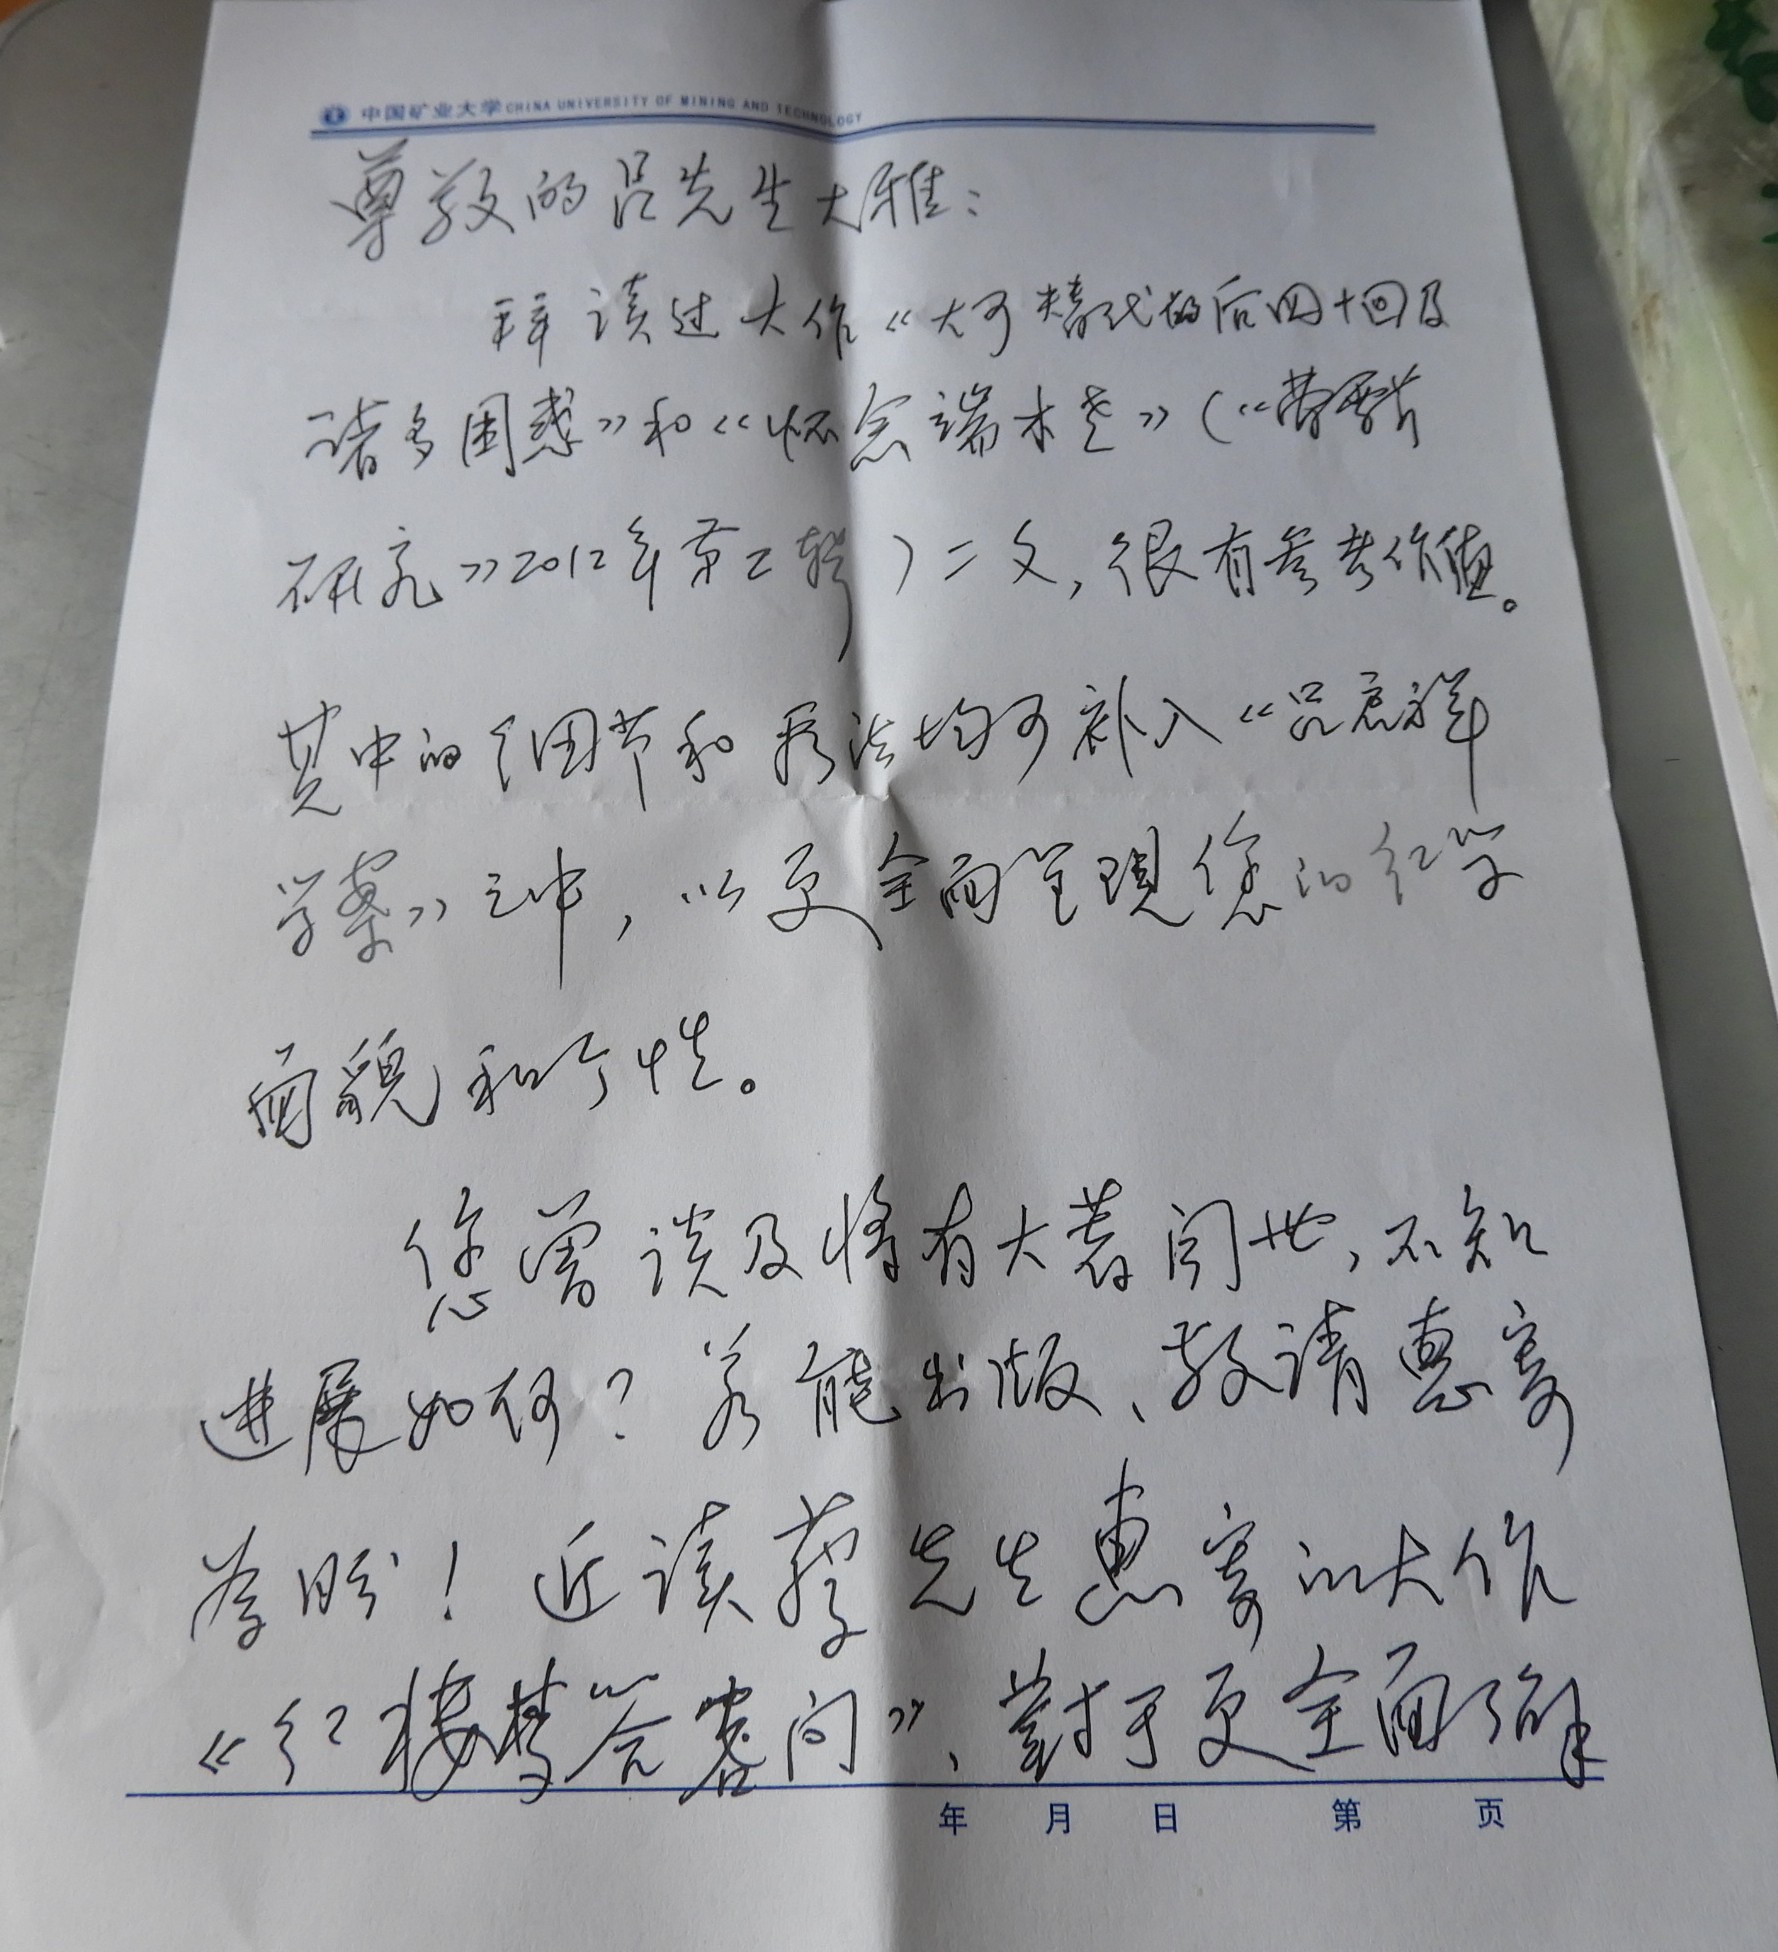 中国矿业大学 CHINA UNIVERSITY OF MINING AND TECHNOLOGY
尊敬的吕先生大雅：
拜读过大作《大可替代的后四十回及
诸多困惑》和《怀念端木老》（《曹雪芹
研究》2012年第二辑）二文，很有参考价值。
其中的细节和看法均可补入《吕启祥
学案》之中，以更全面呈现您的红学
面貌和个性。
您曾谈及将有大著问世，不知
进展如何？若能出版、敬请惠寄
为盼！近读蔡先生惠寄的大作
《红楼梦答客问》、对于更全面了解
年 月 日 第 页